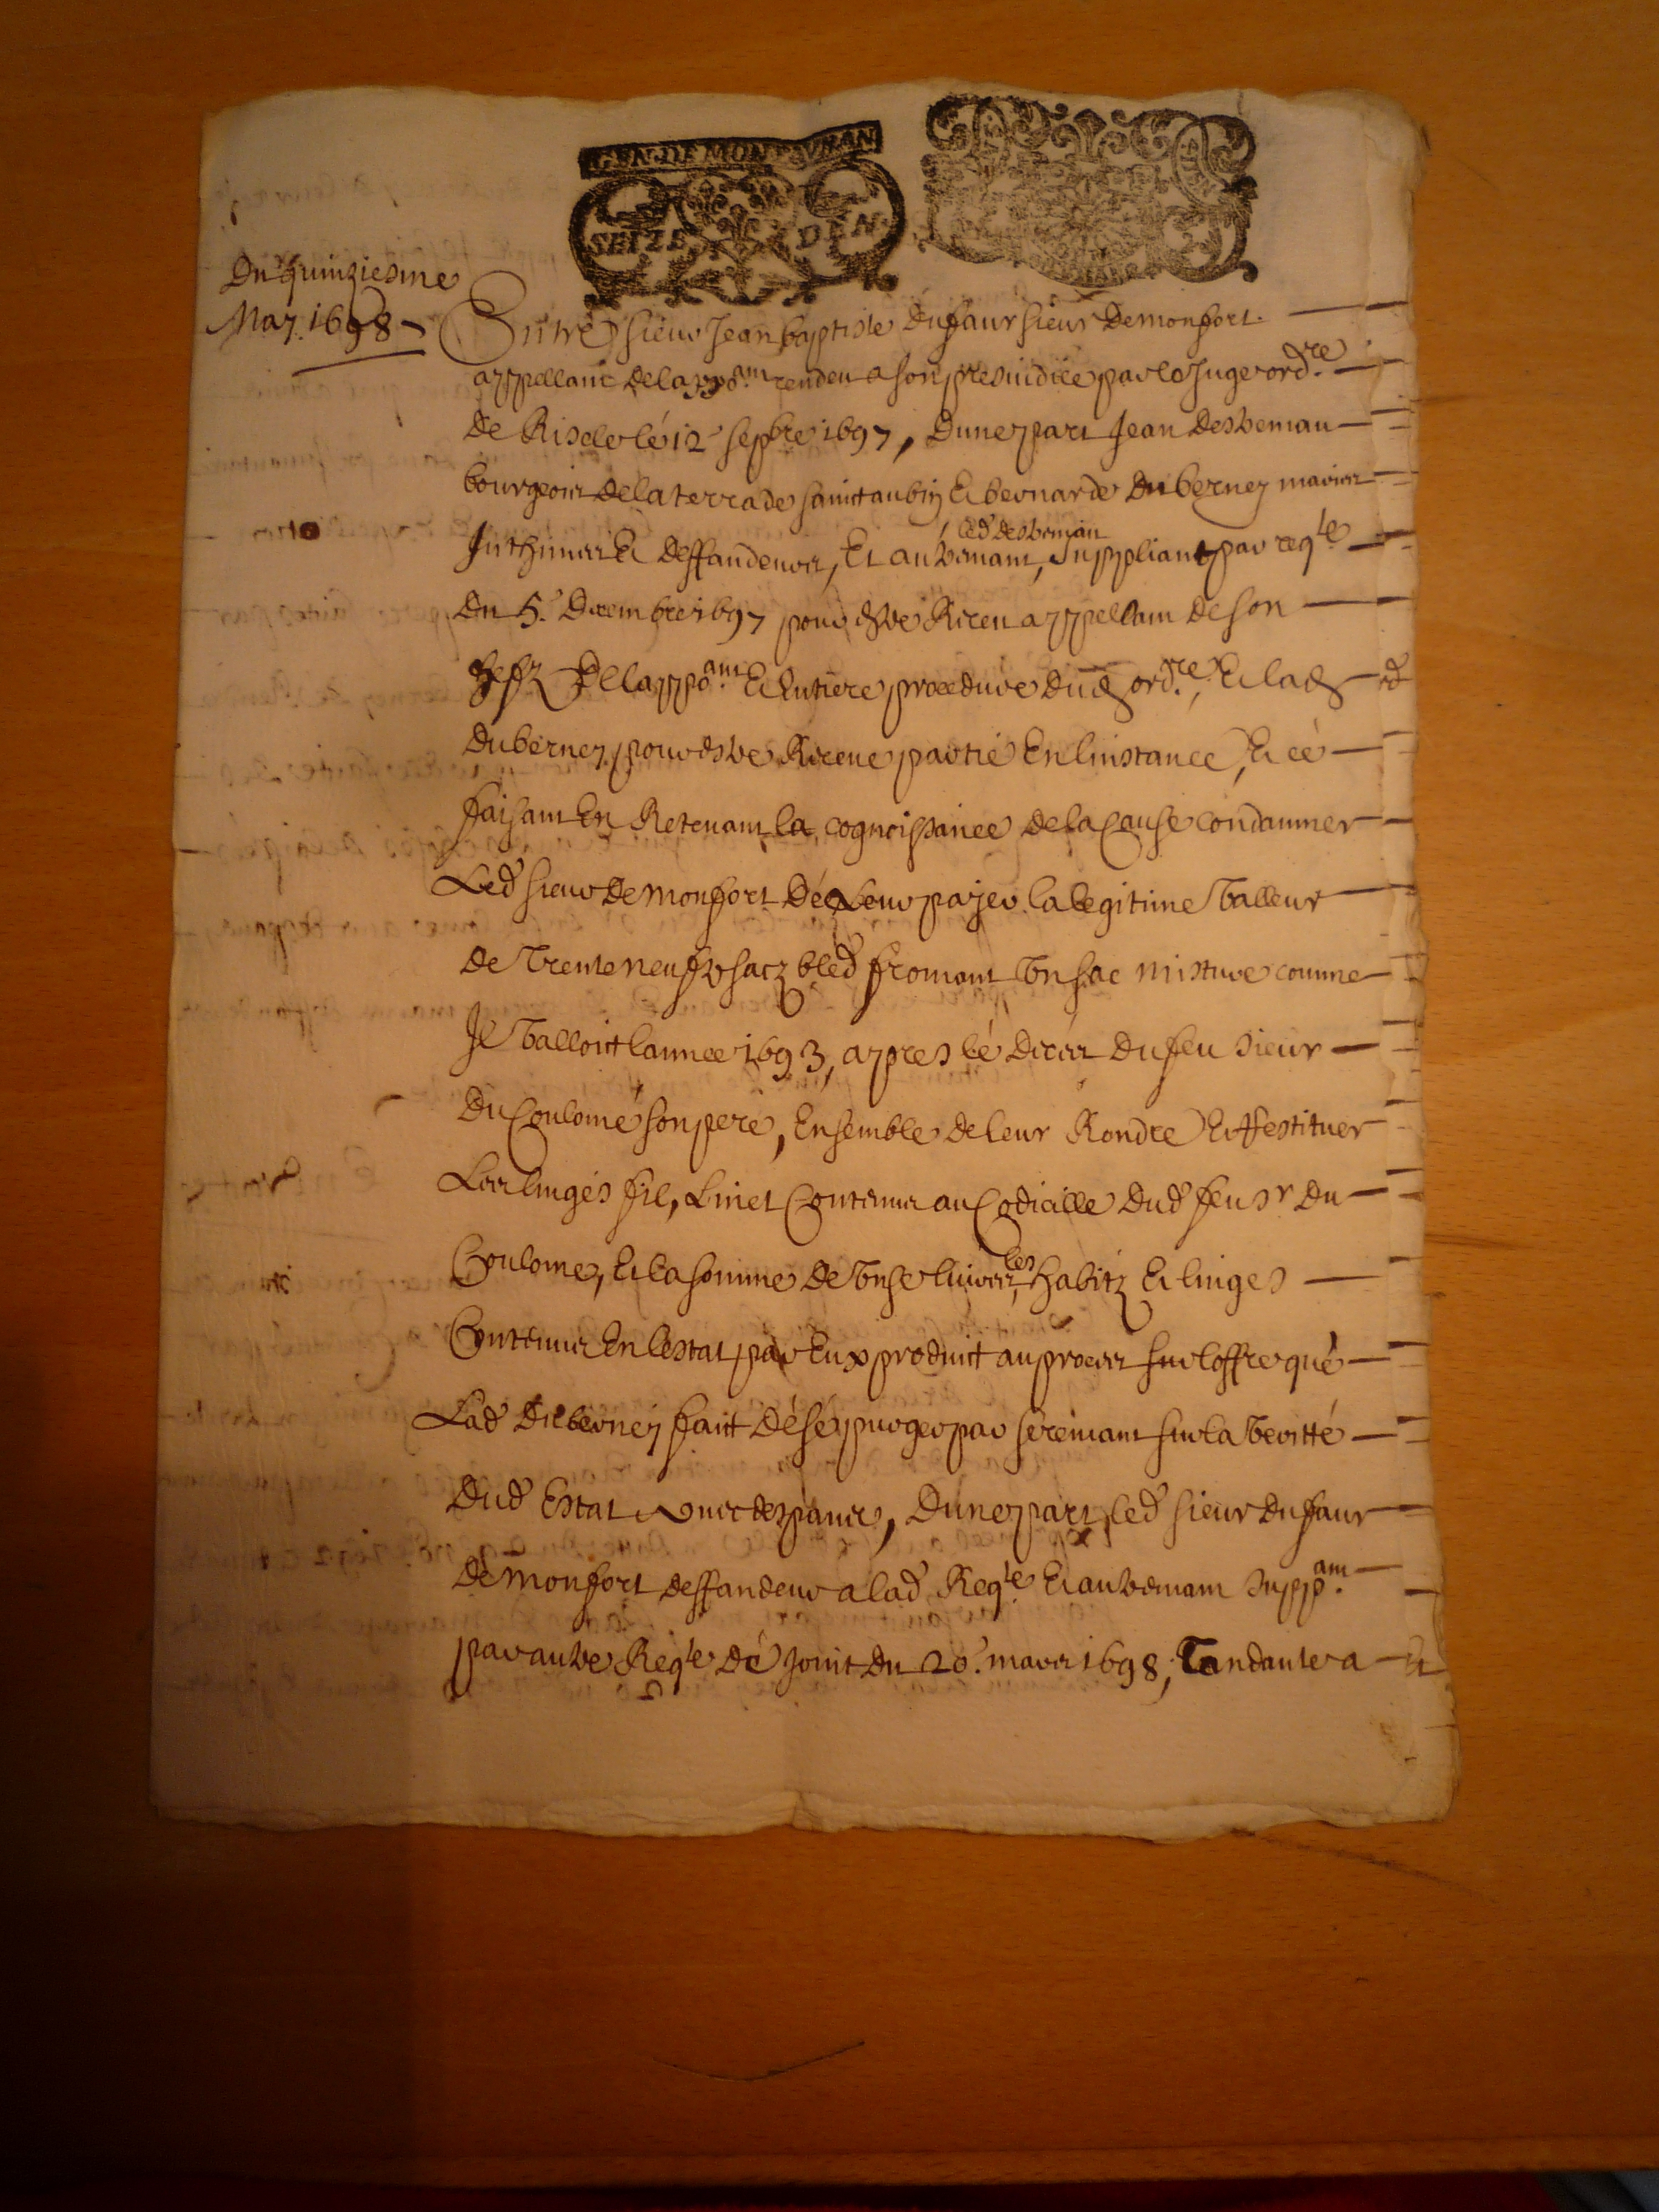 GEN. DE MONTAVBAN
SEIZE DEN.
Du quinziesme
May 1698
Entre sieur Jean baptiste dufaur sieur de monfort
appellant de lappoam. rendeu a son presuidice par le Juge ord.re
de Riscle le 12 sepbre 1697, dune part Jean desbeman
bourgeois de la terrade sainct aubin & bernarde duberney maries
Inthimes & deffandeurs, Et autremant, led desbeman suppliant par reqte
du 5. decembre 1697 pour estre Receu appellant de son
chef de lappoam. & entiere procedure dud ord.re, & lad
duberney pour estre Receue partie en linstance, & ce
faisant en Retenant la cognoissance de la cause condamner
Led sieur de monfort de leur payer la legitime valleur
de trente neuf sacz bled fromant un sac misture comme
Il valloict lannee 1693, apres le deces du feu sieur
du Coulome son pere, ensemble de leur Randre & Restituer
Les linges fil, & linet contenus au Codicille dud feu sr du
Coulome, & la somme de unse livres, les habitz & linges
Contenus en lestat par eux produict au proces sur loffre que
Lad duberney faict de se purger par seremant sur la veritté
dud estat avec despans, dune part, led sieur dufaur
de monfort deffandeur a lad Reqte. & autremant suppam.
par autre Reqte de joint du 20. mars 1698, tandante a